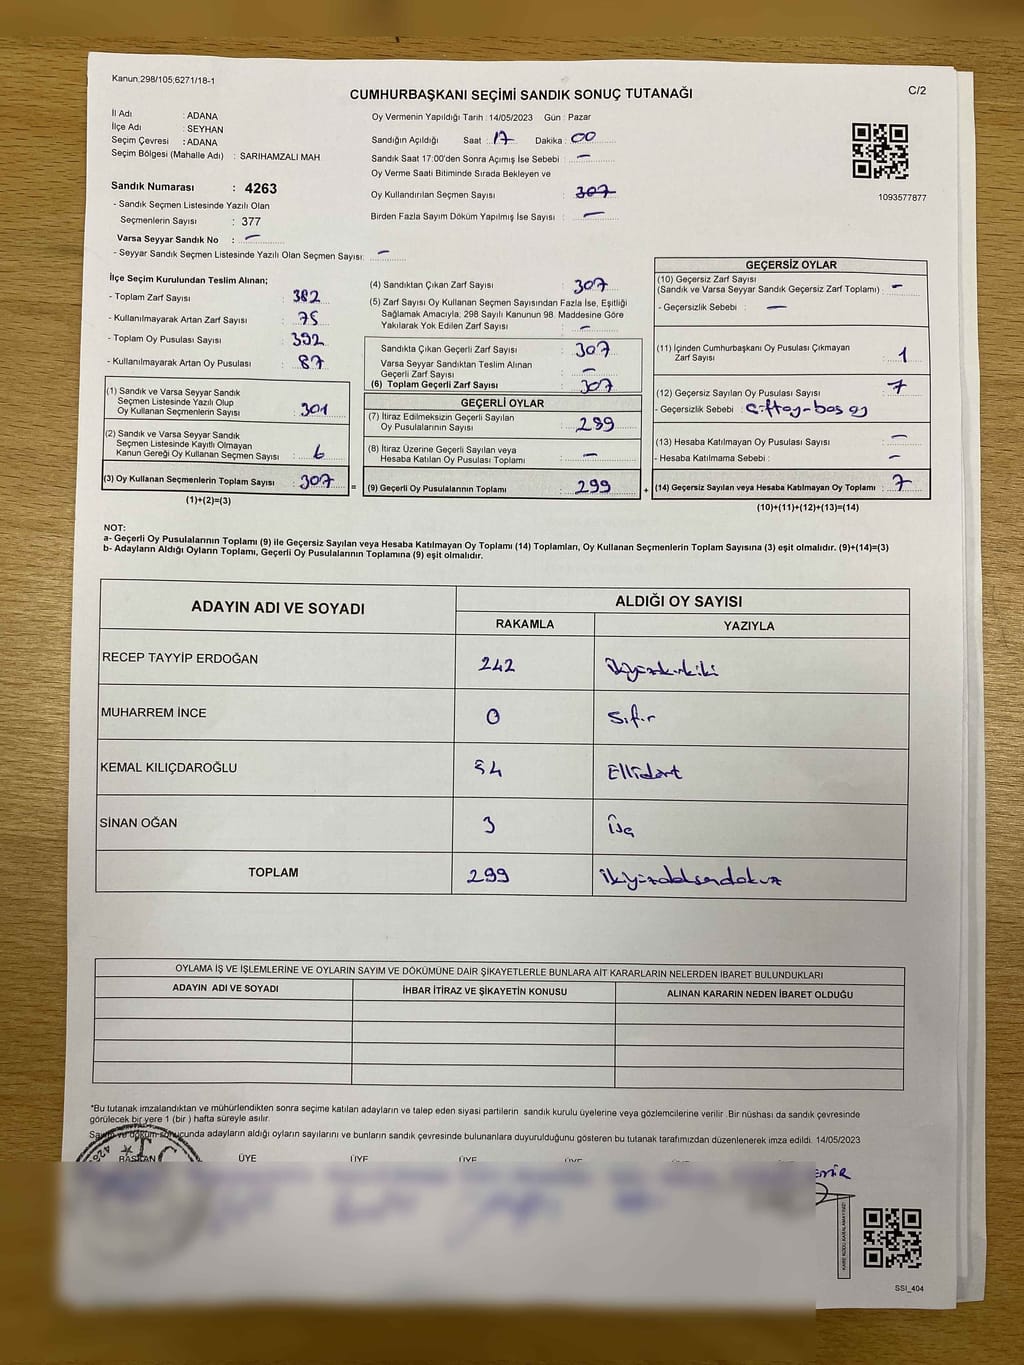 Kanun.298/105,6271/18-1
CUMHURBAŞKANI SEÇİMİ SANDIK SONUÇ TUTANAĞI
C/2
İl Adı : ADANA
İlçe Adı : SEYHAN
Seçim Çevresi : ADANA
Seçim Bölgesi (Mahalle Adı) : SARIHAMZALI MAH
Sandık Numarası : 4263
- Sandık Seçmen Listesinde Yazılı Olan
Seçmenlerin Sayısı : 377
Varsa Seyyar Sandık No : —
- Seyyar Sandık Seçmen Listesinde Yazılı Olan Seçmen Sayısı: —
Oy Vermenin Yapıldığı Tarih : 14/05/2023 Gün : Pazar
Sandığın Açıldığı Saat : 17 Dakika : 00
Sandık Saat 17:00'den Sonra Açımış İse Sebebi : —
Oy Verme Saati Bitiminde Sırada Bekleyen ve
Oy Kullandırılan Seçmen Sayısı : 307
Birden Fazla Sayım Döküm Yapılmış İse Sayısı : —
1093577877
İlçe Seçim Kurulundan Teslim Alınan;
- Toplam Zarf Sayısı : 382
- Kullanılmayarak Artan Zarf Sayısı : 75
- Toplam Oy Pusulası Sayısı : 392
- Kullanılmayarak Artan Oy Pusulası : 87
(1) Sandık ve Varsa Seyyar Sandık
Seçmen Listesinde Yazılı Olup
Oy Kullanan Seçmenlerin Sayısı : 301
(2) Sandık ve Varsa Seyyar Sandık
Seçmen Listesinde Kayıtlı Olmayan
Kanun Gereği Oy Kullanan Seçmen Sayısı : 6
(3) Oy Kullanan Seçmenlerin Toplam Sayısı : 307
(1)+(2)=(3)
(4) Sandıktan Çıkan Zarf Sayısı : 307
(5) Zarf Sayısı Oy Kullanan Seçmen Sayısından Fazla İse, Eşitliği
Sağlamak Amacıyla, 298 Sayılı Kanunun 98. Maddesine Göre
Yakılarak Yok Edilen Zarf Sayısı : —
Sandıkta Çıkan Geçerli Zarf Sayısı : 307
Varsa Seyyar Sandıktan Teslim Alınan
Geçerli Zarf Sayısı : —
(6) Toplam Geçerli Zarf Sayısı : 307
GEÇERLİ OYLAR
(7) İtiraz Edilmeksizin Geçerli Sayılan
Oy Pusulalarının Sayısı : 299
(8) İtiraz Üzerine Geçerli Sayılan veya
Hesaba Katılan Oy Pusulası Toplamı : —
= (9) Geçerli Oy Pusulalarının Toplamı : 299 +
GEÇERSİZ OYLAR
(10) Geçersiz Zarf Sayısı
(Sandık ve Varsa Seyyar Sandık Geçersiz Zarf Toplamı) : —
- Geçersizlik Sebebi : —
(11) İçinden Cumhurbaşkanı Oy Pusulası Çıkmayan
Zarf Sayısı : 1
(12) Geçersiz Sayılan Oy Pusulası Sayısı : 7
- Geçersizlik Sebebi : Çift oy - boş oy
(13) Hesaba Katılmayan Oy Pusulası Sayısı : —
- Hesaba Katılmama Sebebi : —
(14) Geçersiz Sayılan veya Hesaba Katılmayan Oy Toplamı : 7
(10)+(11)+(12)+(13)=(14)
NOT:
a- Geçerli Oy Pusulalarının Toplamı (9) ile Geçersiz Sayılan veya Hesaba Katılmayan Oy Toplamı (14) Toplamları, Oy Kullanan Seçmenlerin Toplam Sayısına (3) eşit olmalıdır. (9)+(14)=(3)
b- Adayların Aldığı Oyların Toplamı, Geçerli Oy Pusulalarının Toplamına (9) eşit olmalıdır.
ADAYIN ADI VE SOYADI
ALDIĞI OY SAYISI
RAKAMLA YAZIYLA
RECEP TAYYİP ERDOĞAN 242 ikiyüzkırkiki
MUHARREM İNCE 0 sıfır
KEMAL KILIÇDAROĞLU 54 Ellidört
SİNAN OĞAN 3 Üç
TOPLAM 299 ikiyüzdoksandokuz
OYLAMA İŞ VE İŞLEMLERİNE VE OYLARIN SAYIM VE DÖKÜMÜNE DAİR ŞİKAYETLERLE BUNLARA AİT KARARLARIN NELERDEN İBARET BULUNDUKLARI
ADAYIN ADI VE SOYADI İHBAR İTİRAZ VE ŞİKAYETİN KONUSU ALINAN KARARIN NEDEN İBARET OLDUĞU
*Bu tutanak imzalandıktan ve mühürlendikten sonra seçime katılan adayların ve talep eden siyasi partilerin sandık kurulu üyelerine veya gözlemcilerine verilir. Bir nüshası da sandık çevresinde
görülecek bir yere 1 (bir ) hafta süreyle asılır.
Sayım ve döküm sonucunda adayların aldığı oyların sayılarını ve bunların sandık çevresinde bulunanlara duyurulduğunu gösteren bu tutanak tarafımızdan düzenlenerek imza edildi. 14/05/2023
BAŞKAN ÜYE ÜYE ÜYE
T.C.
SSI_404